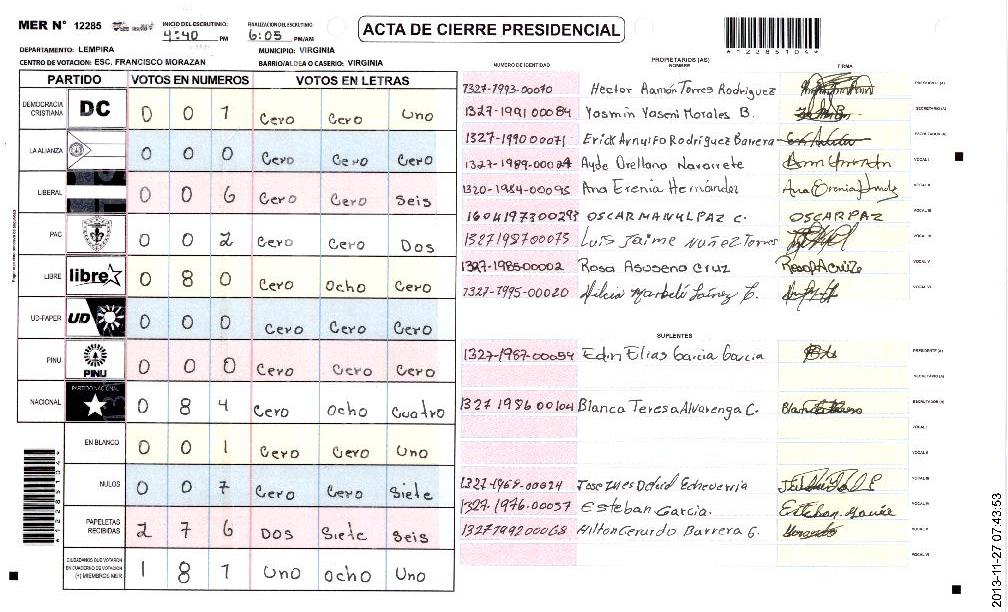 MER N° 12285
INICIO DEL ESCRUTINIO: 4:40 PM
FINALIZACION DEL ESCRUTINIO: 6:05 PM/AM
ACTA DE CIERRE PRESIDENCIAL
*1228510 4*
DEPARTAMENTO: LEMPIRA MUNICIPIO: VIRGINIA
CENTRO DE VOTACION: ESC. FRANCISCO MORAZAN BARRIO/ALDEA O CASERIO: VIRGINIA
PARTIDO VOTOS EN NUMEROS VOTOS EN LETRAS
DEMOCRACIA CRISTIANA DC 0 0 1 Cero Cero Uno
LA ALIANZA 0 0 0 Cero Cero Cero
LIBERAL 0 0 6 Cero Cero Seis
PAC 0 0 2 Cero Cero Dos
LIBRE libre 0 8 0 Cero Ocho Cero
UD-FAPER UD 0 0 0 Cero Cero Cero
PINU PINU 0 0 0 Cero Cero Cero
NACIONAL PARTIDO NACIONAL 0 8 4 Cero Ocho Cuatro
EN BLANCO 0 0 1 Cero Cero Uno
NULOS 0 0 7 Cero Cero Siete
PAPELETAS RECIBIDAS 2 7 6 Dos Siete Seis
CIUDADANOS QUE VOTARON EN CUADERNO DE VOTACION (+) MIEMBROS MER 1 8 1 Uno Ocho Uno
NUMERO DE IDENTIDAD PROPIETARIOS (AS) NOMBRE FIRMA
1327-1993-00070 Hector Ramón Torres Rodriguez PRESIDENTE (A)
1327-1991 00084 Yasmin Yaseni Morales B. SECRETARIO (A)
1327-1990 00071 Erick Arnulfo Rodríguez Barrera ESCRUTADOR (A)
1327-1989-00024 Ayde Orellana Navarrete VOCAL I
1320-1984-00095 Ana Erenia Hernández Ana Erenia Hndz VOCAL II
1604197300293 OSCAR MANUL PAZ C. OSCAR PAZ VOCAL III
1327198700073 Luís Jaime Nuñez Torres VOCAL IV
1327-1985-00002 Rosa Asusena Cruz Rosa A Cruz VOCAL V
1327-1995-00020 VOCAL VI
SUPLENTES
1327-1987-00054 Edin Elias Garcia Garcia PRESIDENTE (A)
SECRETARIO (A)
1327 1986 00104 Blanca Teresa Alvarenga C. ESCRUTADOR (A)
VOCAL I
VOCAL II
1327-1969-00024 Jose Ines Echeverria VOCAL III
1327-1976-00057 Esteban Garcia. Esteban Garcia VOCAL IV
1327199200068 Hilton Gerardo Barrera G. Gerardo VOCAL V
VOCAL VI
2013-11-27 07:43:53